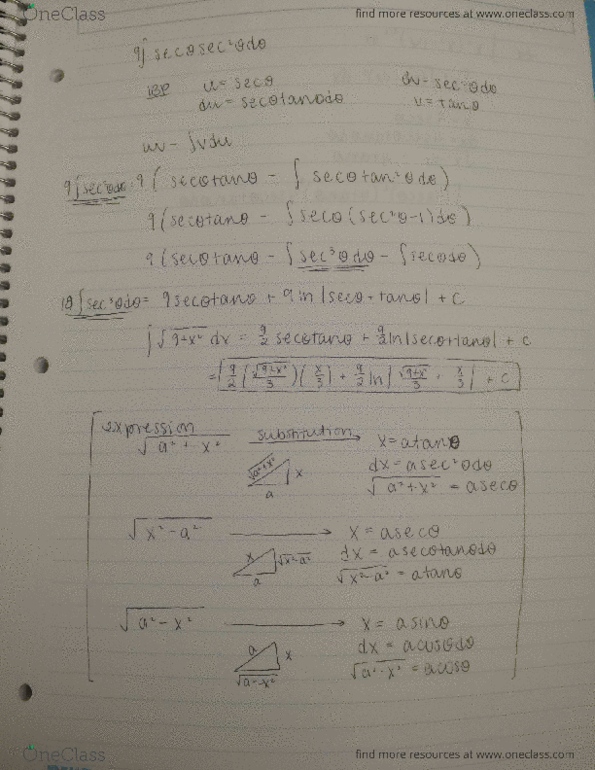 OneClass
find more resources at www.oneclass.com
9∫ secθ sec²θ dθ
IBP u = secθ dv = sec²θ dθ
du = secθ tanθ dθ v = tanθ
uv - ∫vdu
9∫sec³θdθ = 9 ( secθ tanθ - ∫ secθ tan²θ dθ )
9 ( secθ tanθ - ∫ secθ (sec²θ-1) dθ )
9 ( secθ tanθ - ∫ sec³θ dθ - ∫ secθ dθ )
18 ∫ sec³θ dθ = 9 secθ tanθ + 9 ln |secθ + tanθ| + C
∫ √9+x² dx = 9/2 secθ tanθ + 9/2 ln |secθ + tanθ| + C
= 9/2 ( √9+x²/3 ) ( x/3 ) + 9/2 ln | √9+x²/3 + x/3 | + C
expression substitution
√a² + x² x = a tanθ
√a²+x² x dx = a sec²θ dθ
a √a²+x² = a secθ
√x² - a² x = a secθ
x √x²-a² dx = a secθ tanθ dθ
a √x²-a² = a tanθ
√a² - x² x = a sinθ
a x dx = a cosθ dθ
√a²-x² √a²-x² = a cosθ
OneClass
find more resources at www.oneclass.com